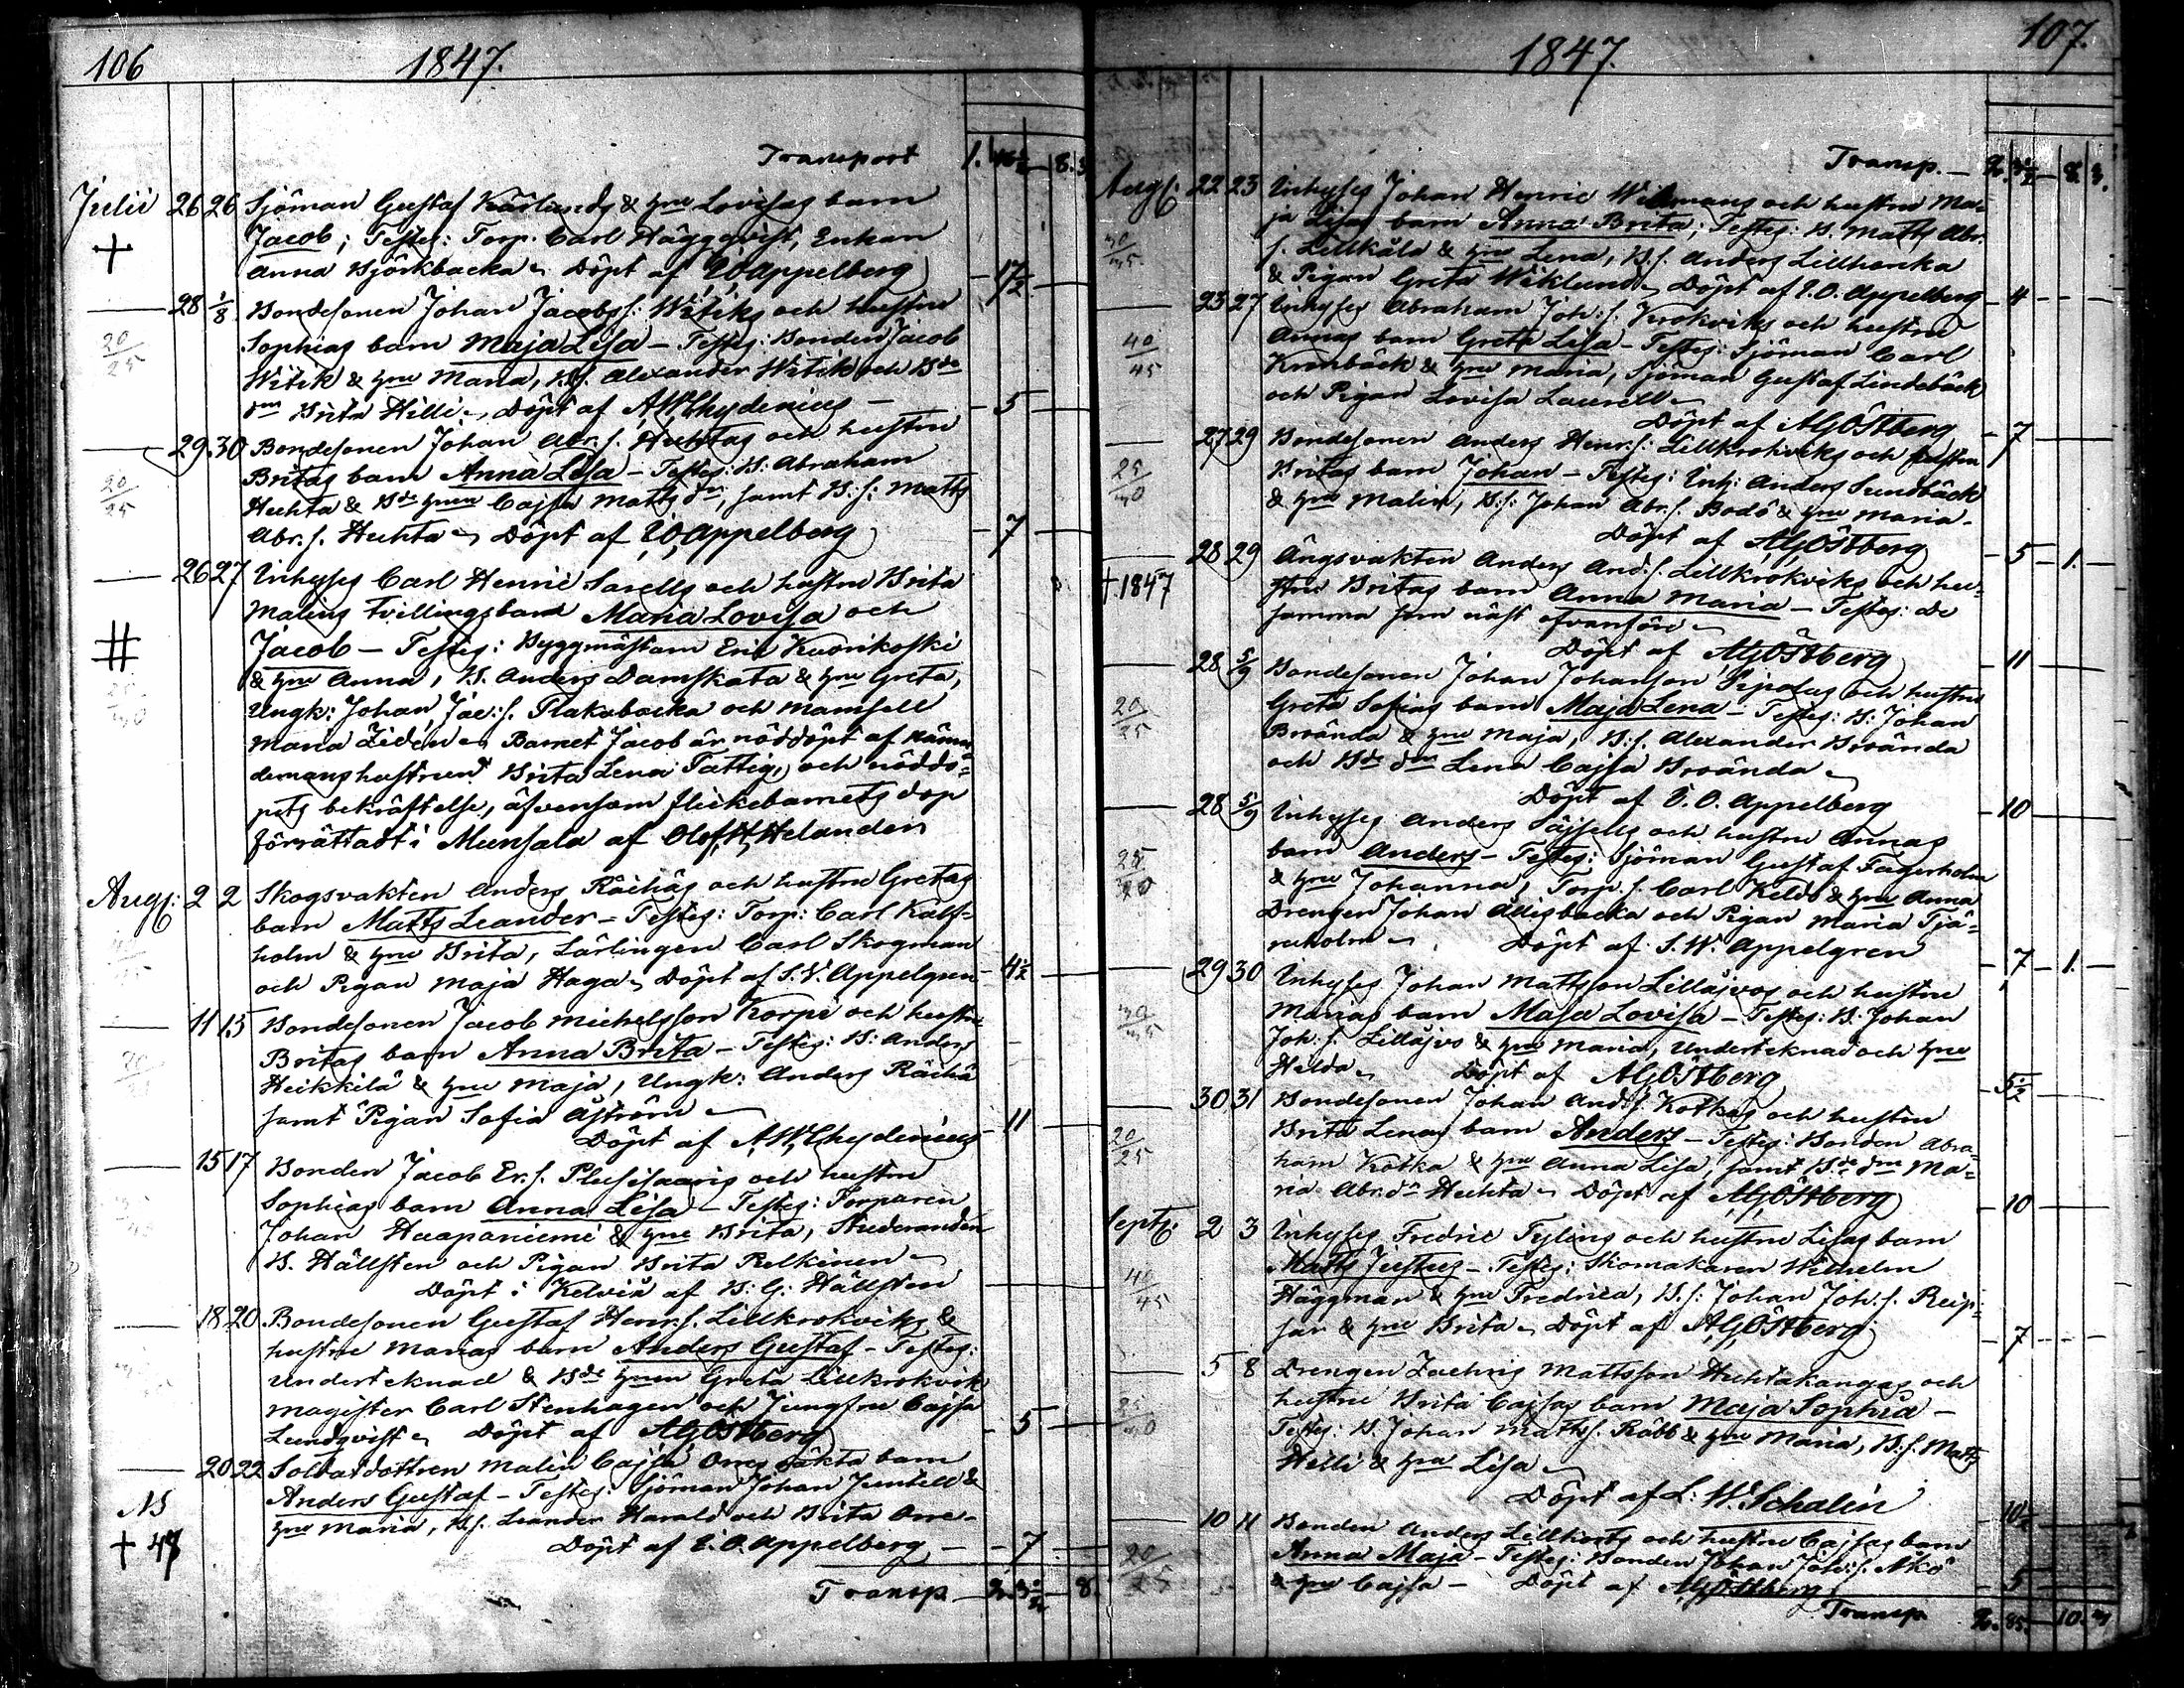 106 1847.
Transport 1. 46½ 8. 3
Julii 26 26 Sjöman Gustaf Kärlunds & hru Lovisas barn
+ Jacob; Testes: Torp. Carl Häggqvist, Enkan
Anna Björkbacka. Döpt af E.O. Appelberg 17½
28 1/8 Bondesonen Johan Jacobss: Witiks och hustru
20/25 Sophias barn Maja Lisa – Testes: Bonden Jacob
Witik & hru Maria, B.s. Alexander Witik och Bde
drn Brita Hilli. Döpt af A.W. Chydenius – 5
29 30 Bondesonen Johan Abr. s. Huhtas och hustru
20/25 Britas barn Anna Lisa – Testes: B: Abraham
Huhta & Bde hrun Cajsa Matts dr, samt B. s: Matts
Abr. s. Huhta. Döpt af E.O. Appelberg 7
26 27 Inhyses Carl Henric Sarells och hustru Brita
Malins tvillingsbarn Maria Lovisa och
# Jacob – Testes: Byggmästarn Eric Kuorikoski
& hru Anna, B. Anders Damskata & hru Greta,
Ungk: Johan Jac: s. Flakabacka och Mamsell
Maria Zidén. Barnet Jacob är nöddöpt af Nämn-
demanshustrun Brita Lena Tatteg, och nöddo-
pets bekräftelse, äfvensom flickebarnets dop
förrättadt i Munsala af Olof H. Helander
Aug: 2 2 Skogsvakten Anders Räihäs och hustru Gretas
barn Matts Leander – Testes: Torp: Carl Kalf-
holm & hru Brita, Lärlingen Carl Skogman
och Pigan Maja Haga. Döpt af S.W. Appelgren 4½
11 15 Bondesonen Jacob Michelsson Korpi och hustru
Britas barn Anna Brita – Testes: B: Anders
Heikkilä & hru Maja, Ungk: Anders Räihä
samt Pigan Sofia Åström
Döpt af A.W. Chydenius 11
15 17 Bonden Jacob Er. s. Plusisaaris och hustru
Sophias barn Anna Lisa – Testes: Torparen
Johan Haapaniemi & hru Brita, Studeranden
B. Hällsten och Pigan Brita Pelkinen
Döpt i Kelviå af B: G: Hällsten
18 20 Bondesonen Gustaf Henr. s. Lillkrokviks &
hustru Marias barn Anders Gustaf – Testes:
Undertecknad & Bde hrun Greta Lillkrokvik
Magister Carl Stenhagen och Jungfru Cajsa
Lundqvist. Döpt af A.G. Östberg 5
20 22 Soldatdottren Malin Cajsa Orres oäkta barn
NS Anders Gustaf – Testes: Sjöman Johan Juntell &
hru Maria, B.s. Leander Harald och Brita Orre –
+ 47 Döpt af E.O. Appelberg – 7
Transp. 2. 3½ 8.
107. 1847.
Transp. – 2. 3½ 8. 3.
Aug: 22 23 Inhyses Johan Henric Wikmans och hustru Ma-
ja Lisas barn Anna Brita; Testes: B. Matts Abr.
30/35 s. Lillkåla & hru Lena, B.s. Anders Lillhonka
& Pigan Greta Wiklund. Döpt af E.O. Appelberg 4
23 27 Inhyses Abraham Joh: s. Krokviks och hustru
40/45 Annas barn Greta Lisa – Testes: Sjöman Carl
Kronbäck & hru Maria, Sjöman Gustaf Lindebäck
och Pigan Lovisa Laurell
Döpt af A.G. Östberg 7
27 29 Bondesonen Anders Henr: s: Lillkrokviks och hustru
25/30 Britas barn Johan – Testes: Inh: Anders Sundbäck
& hru Malin, B.s: Johan Abr. s. Bodö & hru Maria –
Döpt af A.G. Östberg 5 1.
28 29 Ängsvakten Anders And. s. Lillkrokviks och hu-
† 1847 stru Britas barn Anna Maria – Testes: de
samma som näst ofvanföre
Döpt af A.G. Östberg 11
28 5/9 Bondesonen Johan Johansson och hustru
20/25 Greta Sofias barn Maja Lena – Testes: B: Johan
Brånda & hru Maja, B.s. Alexander Brånda
och Bde drn Lena Cajsa Brånda
Döpt af E.O. Appelberg 10
28 5/9 Inhyses Anders Säjsells och hustru Annas
barn Anders – Testes: Sjöman Gustaf Fagerholm
25/30 & hru Johanna, Torp. s. Carl Keldo & hru Anna
Drengen Johan Ållisbacka och Pigan Maria Tjä-
ruholm. Döpt af S.W. Appelgren 7 1.
29 30 Inhyses Johan Mattsson Lillåjvos och hustru
30/35 Marias barn Maja Lovisa – Testes: B. Johan
Joh. s. Lillåjvo & hru Maria, Undertecknad och hru
Hilda. Döpt af A.G. Östberg 5½
30 31 Bondesonen Johan And: s. Kotkas och hustru
20/25 Brita Lenas barn Anders – Testes: Bonden Abra-
ham Kotka & hru Anna Lisa, samt Bde drn Ma-
ria Abr. dr Huhta. Döpt af A.G. Östberg 10
Sept: 2 3 Inhyses Fredric Fylins och hustru Lisas barn
40/45 Matts Justus – Testes: Skomakaren Wilhelm
Häggman & hru Fredrica, B.s: Johan Joh. s. Reip-
sar & hru Brita. Döpt af A.G. Östberg 7
5 8 Drengen Zachris Mattsson Huhtakangas och
25/30 hustru Brita Cajsas barn Maja Sophia –
Testes: B. Johan Mattss. Råbb & hru Maria, B.s. Matts
Hilli & hru Lisa
Döpt af L: W. Schalin 10½
10 11 Bonden Anders Lillkorts och hustru Cajsas barn
20/25 Anna Maja – Testes: Bonden Johan Joh: s. Åkö
& hru Cajsa – Döpt af A.G. Östberg 5
Transp. 2. 85. 10.